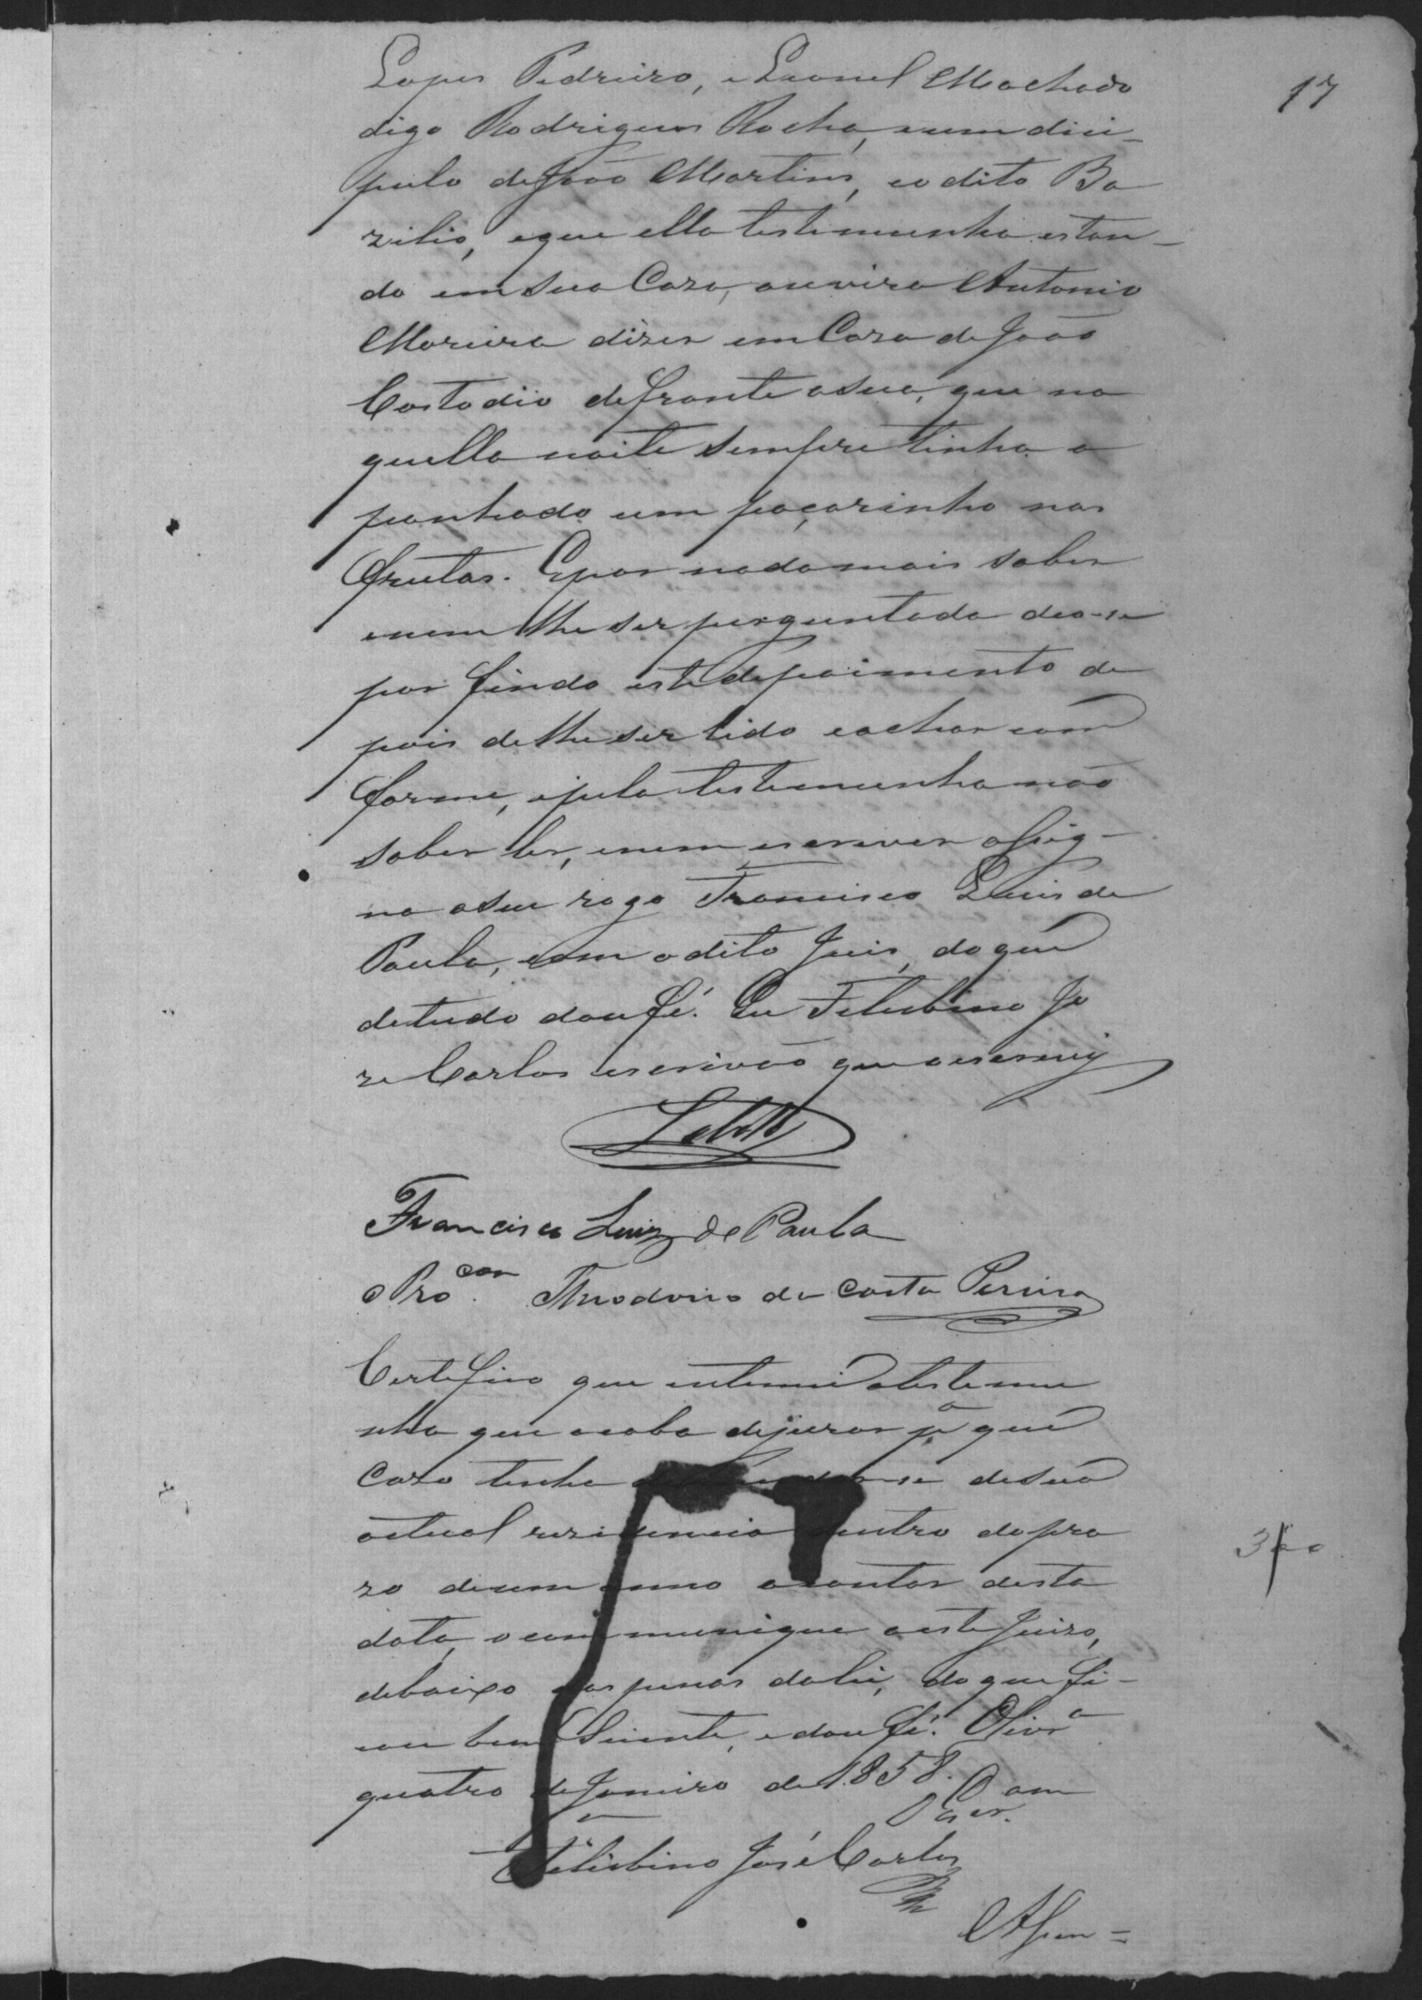 17
Lopes Pedreiro, e Leonel Machado
digo Rodrigues Rocha, e um disi-
pulo de João Martins, e o dito Ba
zilio, e que ella testemunha estan-
do em sua Caza, ouvira Antonio
Moreira dizer em Caza de João
Costodio defronte a sua, que na
quella noite sempre tinha a
panhado um paçarinho nas
frutas. E por nada mais saber
e nem lhe ser perguntado deo-se
por findo este depoimento de
pois de lhe ser lido e achar com
forme, e pela testemunha não
saber ler, e nem escrever assig-
na a seu rogo Francisco Luis de
Paula, com o dito Juis, do que
de tudo dou fé. Eu Felisbino Jo
ze Carlos escrivão que o escrevy
Francisco Luiz de Paula
O Pro.cor Theodoro da Costa Pereira
Certefico que intemei a testemu
nha que acaba de jurar pª que
Cazo tenha de se de sua
actual rezidencia dentro do pra
zo de um anno a contar desta
data, o communique a este Juizo,
300
debaixo das penas da lei, do que fi-
cou bem Sciente, e dou fé. Olivrª
quatro de Janeiro de 1858.
O Escr.am
Felisbino José Carlos
Assen=